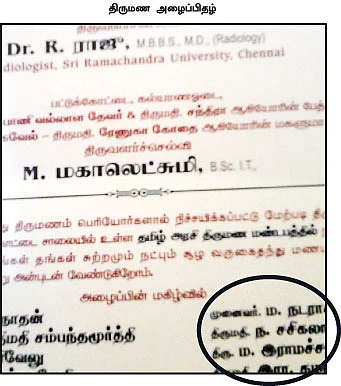 திருமண அழைப்பிதழ்
Dr. R. ராஜு, M.B.B.S., M.D., (Radiology)
diologist, Sri Ramachandra University, Chennai
பட்டுக்கோட்டை, கல்யாணஓடை,
பாணி வல்லாள தேவர் & திருமதி. சந்திரா ஆகியோரின் பேத்
கவேல் – திருமதி. ரேணுகா கோதை ஆகியோரின் மகளுமா
திருவளர்ச்செல்வி
M. மகாலெட்சுமி, B.Sc. I.T.,
து திருமணம் பெரியோர்களால் நிச்சயிக்கப்பட்டு மேற்படி தி
சாலையில் உள்ள தமிழ் அரசி திருமண மண்டபத்தில்
கள் தங்கள் சுற்றமும் நட்பும் சூழ வருகைதந்து மண
அன்புடன் வேண்டுகிறோம்.
அழைப்பின் மகிழ்வில்
நாதன்
மதி சம்பந்தமூர்த்தி
வேலு
முனைவர். ம. நடரா
திருமதி. ந. சசிகலா
திரு. ம. இராமச்ச